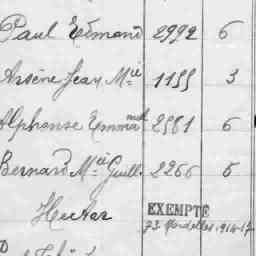 Paul Edmond 2992 6
Arsène Jean Mie 1155 3
Alphonse Emmanuel 2581 6
Bernard Mie Guill. 2266 5
Hector EXEMPTÉ
73 1914-17